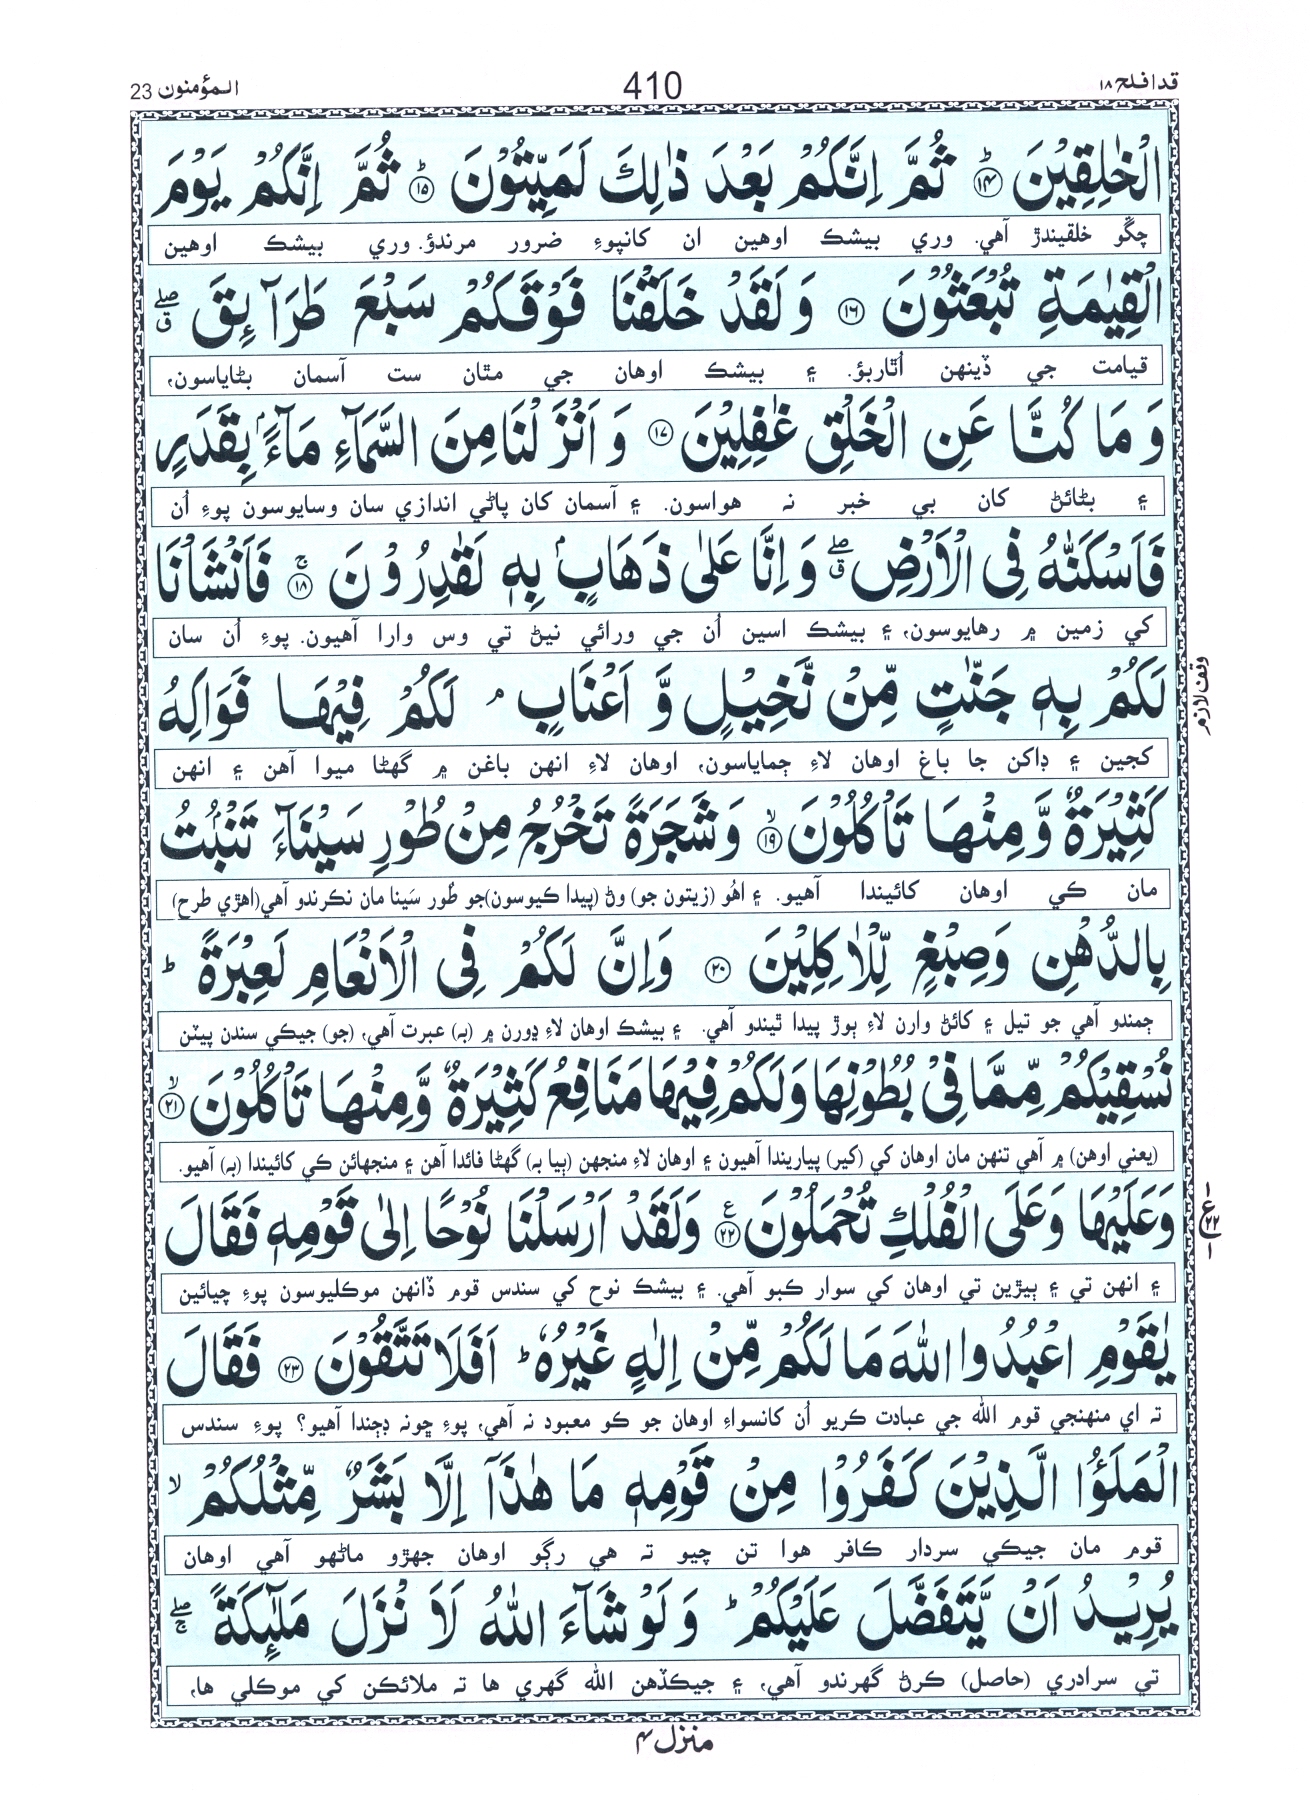 قدافلح ۱۸
410
المؤمنون 23
الْخٰلِقِيْنَ ؕ﴿۱۴﴾ ثُمَّ اِنَّكُمْ بَعْدَ ذٰلِكَ لَمَيِّتُوْنَ ؕ﴿۱۵﴾ ثُمَّ اِنَّكُمْ يَوْمَ
چڱو خلقيندڙ آهي. وري بيشڪ اوهين ان کانپوءِ ضرور مرندؤ. وري بيشڪ اوهين
الْقِيٰمَةِ تُبْعَثُوْنَ ﴿۱۶﴾ وَلَقَدْ خَلَقْنَا فَوْقَكُمْ سَبْعَ طَرَآئِقَ ۖق
قيامت جي ڏينهن اُٿاربؤ. ۽ بيشڪ اوهان جي مٿان ست آسمان بڻاياسون،
وَمَا كُنَّا عَنِ الْخَلْقِ غٰفِلِيْنَ ﴿۱۷﴾ وَاَنْزَلْنَا مِنَ السَّمَآءِ مَآءًۢ بِقَدَرٍ
۽ بڻائڻ کان بي خبر نہ هواسون. ۽ آسمان کان پاڻي اندازي سان وسايوسون پوءِ اُن
فَاَسْكَنّٰهُ فِى الْاَرْضِ ۖق وَاِنَّا عَلٰى ذَهَابٍۢ بِهٖ لَقٰدِرُوْنَ ۚ﴿۱۸﴾ فَاَنْشَاْنَا
کي زمين ۾ رهايوسون، ۽ بيشڪ اسين اُن جي ورائي نيڻ تي وس وارا آهيون. پوءِ اُن سان
لَكُمْ بِهٖ جَنّٰتٍ مِّنْ نَّخِيْلٍ وَّ اَعْنَابٍ ۘ لَكُمْ فِيْهَا فَوَاكِهُ
وقف لازم
کجين ۽ ڊاکن جا باغ اوهان لاءِ ڄماياسون، اوهان لاءِ انهن باغن ۾ گهڻا ميوا آهن ۽ انهن
كَثِيْرَةٌ وَّمِنْهَا تَاْكُلُوْنَ ۙ﴿۱۹﴾ وَشَجَرَةً تَخْرُجُ مِنْ طُوْرِ سَيْنَآءَ تَنْۢبُتُ
مان کي اوهان کائيندا آهيو. ۽ اهُو (زيتون جو) وڻ (پيدا ڪيوسون)جو طُور سَينا مان نڪرندو آهي(اهڙي طرح)
بِالدُّهْنِ وَصِبْغٍ لِّلْاٰكِلِيْنَ ﴿۲۰﴾ وَاِنَّ لَكُمْ فِى الْاَنْعَامِ لَعِبْرَةً ؕ
ڄمندو آهي جو تيل ۽ کائڻ وارن لاءِ ٻوڙ پيدا ٿيندو آهي. ۽ بيشڪ اوهان لاءِ ڍورن ۾ (بہ) عبرت آهي، (جو) جيڪي سندن پيٽن
نُسْقِيْكُمْ مِّمَّا فِيْ بُطُوْنِهَا وَلَكُمْ فِيْهَا مَنَافِعُ كَثِيْرَةٌ وَّمِنْهَا تَاْكُلُوْنَ ۙ﴿۲۱﴾
(يعني اوهن) ۾ آهي تنهن مان اوهان کي (کير) پياريندا آهيون ۽ اوهان لاءِ منجهن (ٻيا بہ) گهڻا فائدا آهن ۽ منجهائن کي کائيندا (بہ) آهيو.
وَعَلَيْهَا وَعَلَى الْفُلْكِ تُحْمَلُوْنَ ع﴿۲۲﴾ وَلَقَدْ اَرْسَلْنَا نُوْحًا اِلٰى قَوْمِهٖ فَقَالَ
ع ۲۲
۽ انهن تي ۽ ٻيڙين تي اوهان کي سوار ڪبو آهي. ۽ بيشڪ نوح کي سندس قوم ڏانهن موڪليوسون پوءِ چيائين
يٰقَوْمِ اعْبُدُوا اللّٰهَ مَا لَكُمْ مِّنْ اِلٰهٍ غَيْرُهٗ ؕ اَفَلَا تَتَّقُوْنَ ﴿۲۳﴾ فَقَالَ
تہ اي منهنجي قوم الله جي عبادت ڪريو اُن کانسواءِ اوهان جو ڪو معبود نہ آهي، پوءِ ڇونہ ڊڄندا آهيو؟ پوءِ سندس
الْمَلَؤُا الَّذِيْنَ كَفَرُوْا مِنْ قَوْمِهٖ مَا هٰذَآ اِلَّا بَشَرٌ مِّثْلُكُمْ ۙ
قوم مان جيڪي سردار ڪافر هوا تن چيو تہ هي رڳو اوهان جهڙو ماڻهو آهي اوهان
يُرِيْدُ اَنْ يَّتَفَضَّلَ عَلَيْكُمْ ؕ وَلَوْ شَآءَ اللّٰهُ لَاَنْزَلَ مَلٰٓئِكَةً ۖج
تي سرادري (حاصل) ڪرڻ گهرندو آهي، ۽ جيڪڏهن الله گهري ها تہ ملائڪن کي موڪلي ها،
منزل ۴